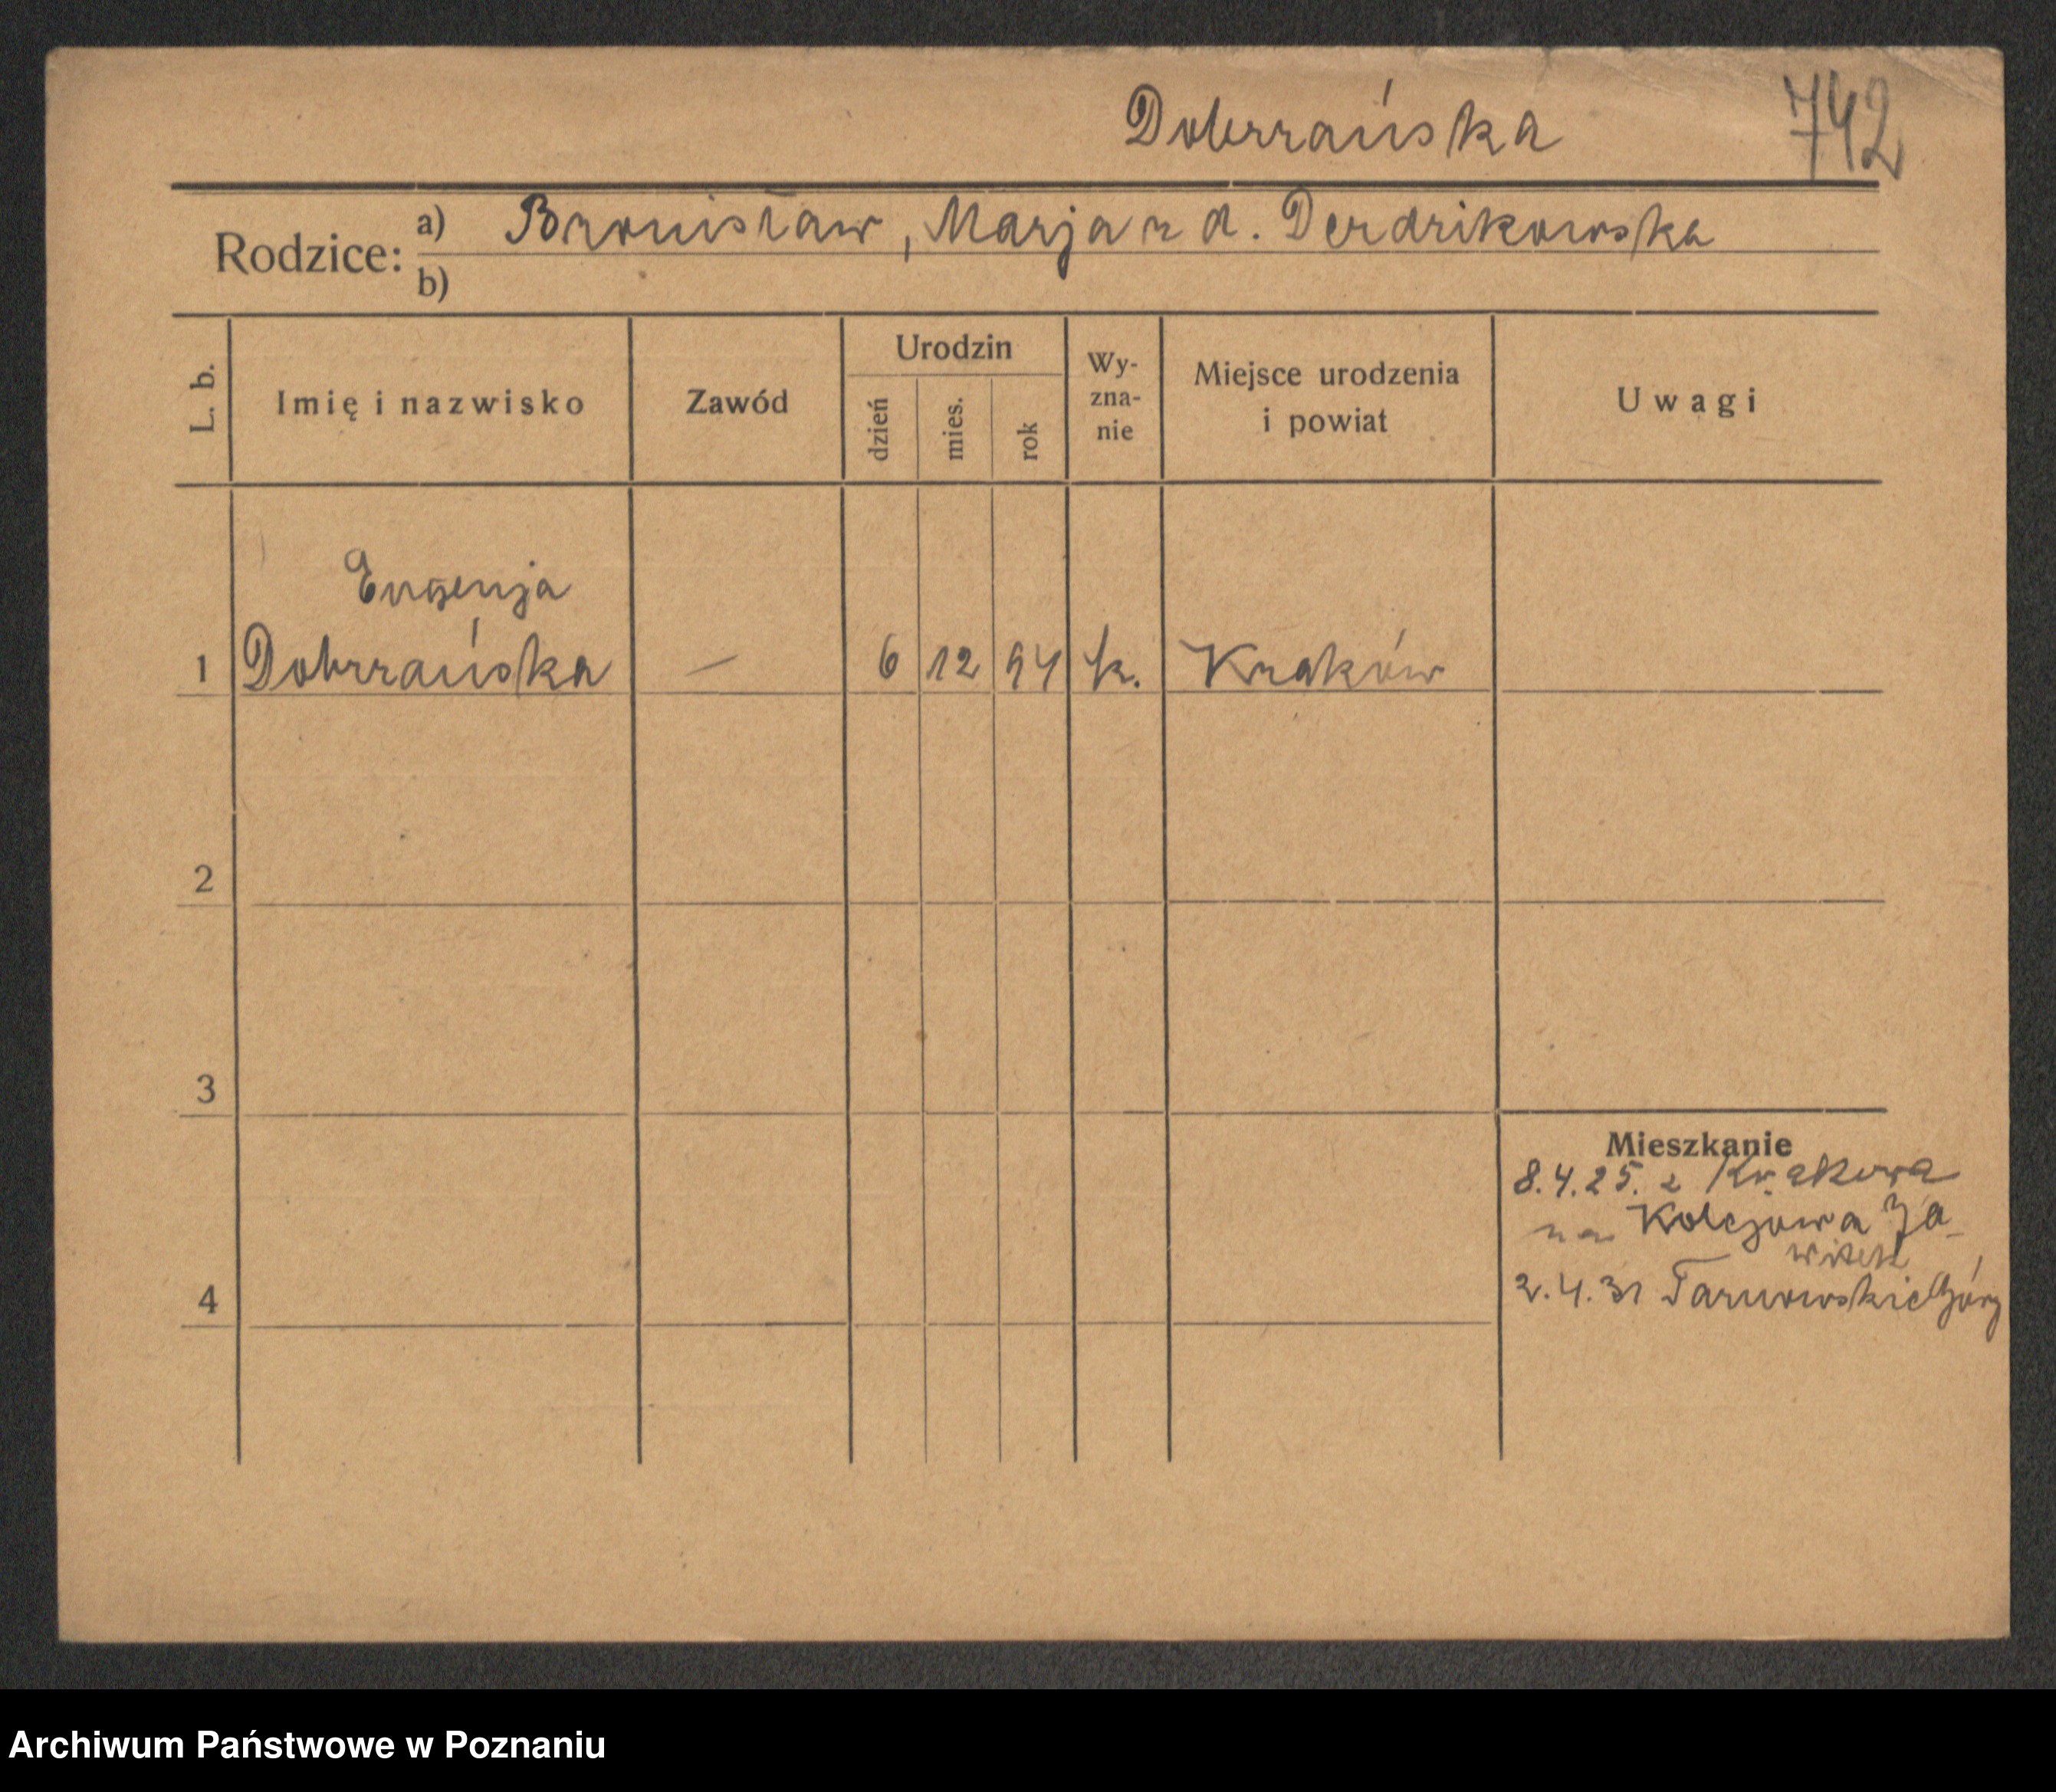 Dobrzańska
742
Rodzice:
a) Bronisław, Marja z d. Dendzikowska
b)
L. b.
Imię i nazwisko
Zawód
Urodzin
dzień
mies.
rok
Wy-
zna-
nie
Miejsce urodzenia
i powiat
Uwagi
Eugenja
1 Dobrzańska — 6 12 94 k. Kraków
2
3
Mieszkanie
8.4.25. z Krakowa
na Kolejowa
4
2.4.31 Tarnowskie Góry
Archiwum Państwowe w Poznaniu